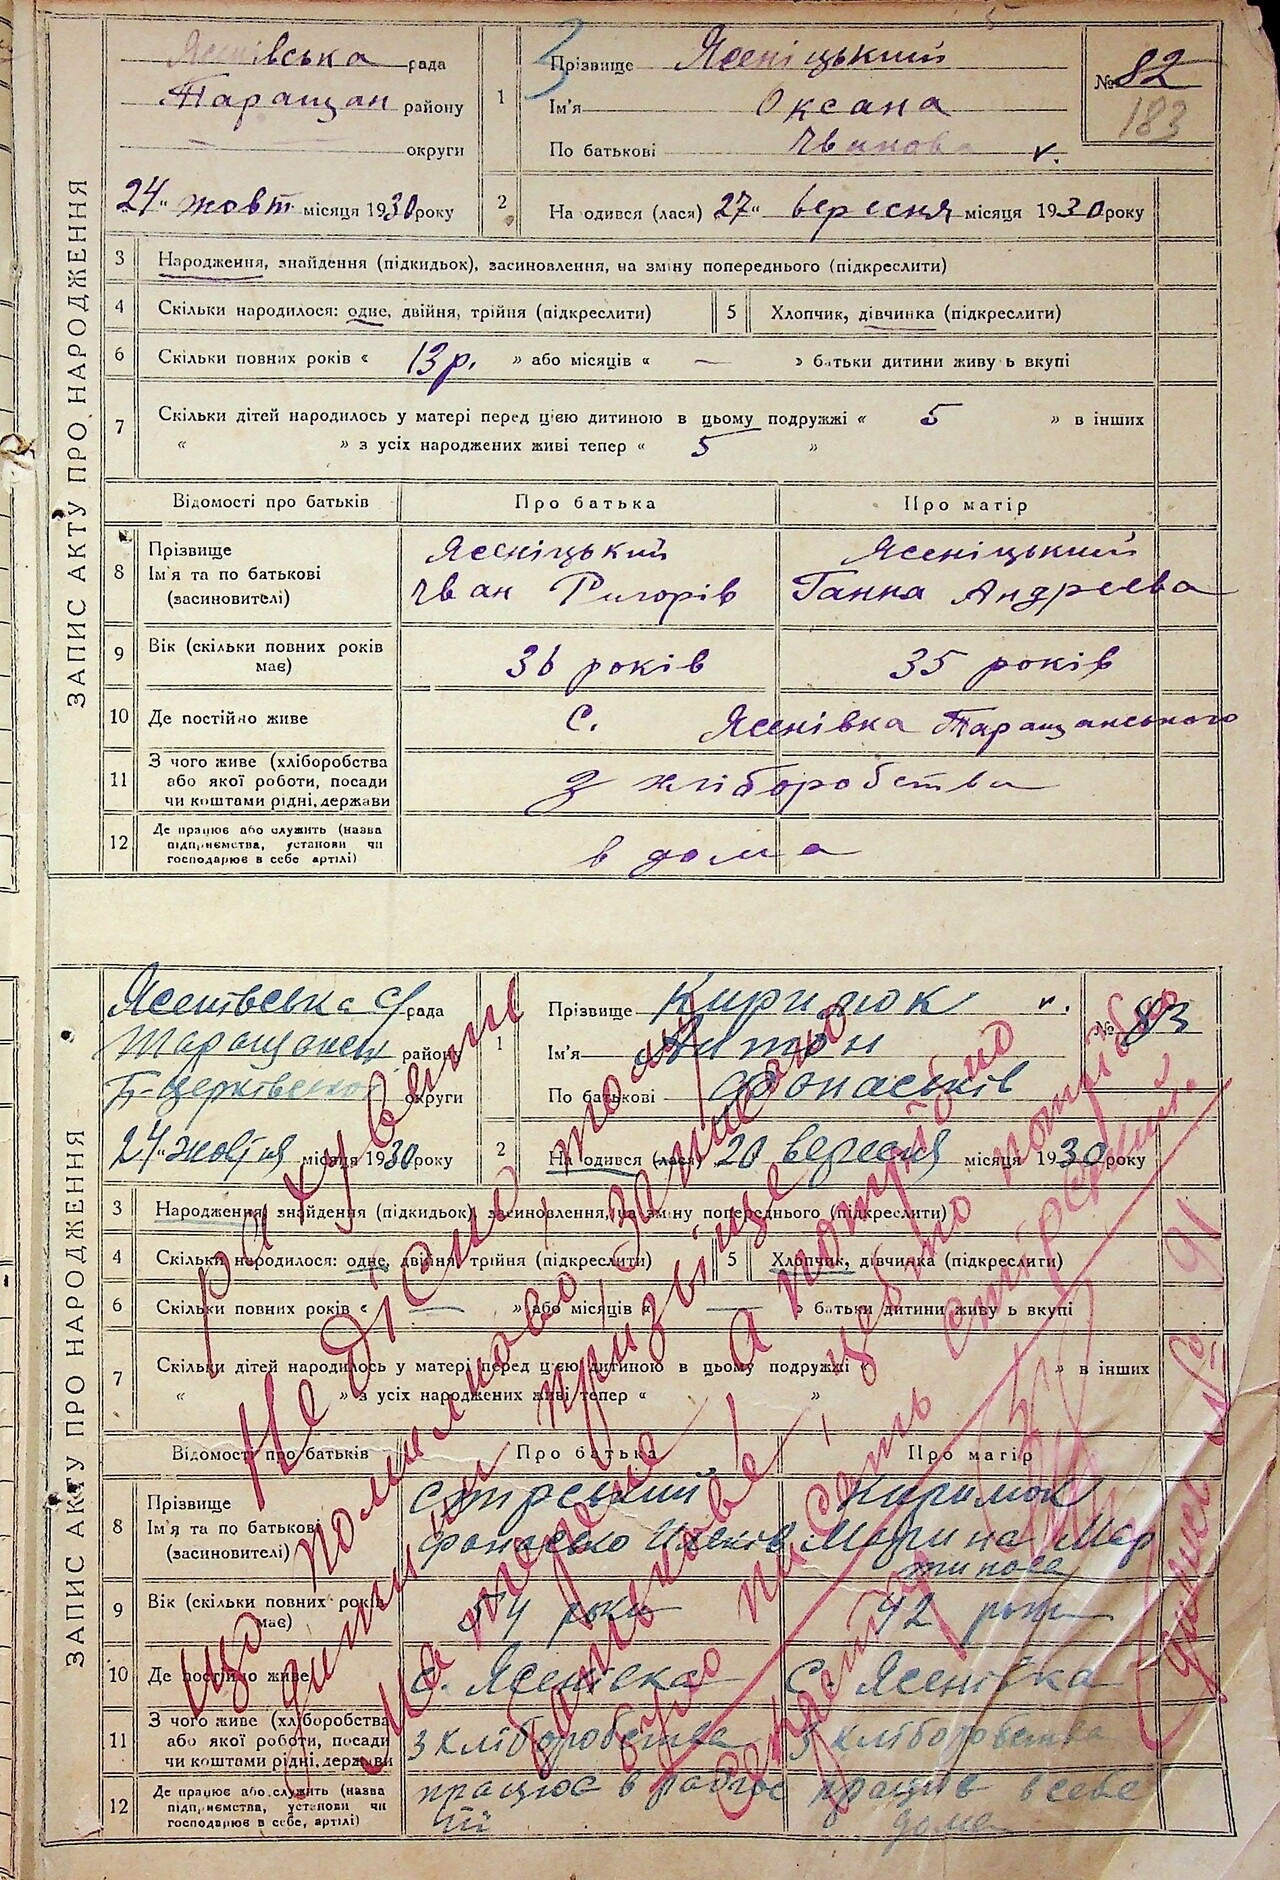 ЗАПИС АКТУ ПРО НАРОДЖЕННЯ
Ясенівська рада
Таращан району
округи
24 " жовт. місяця 1930 року
1 Прізвище Ясеніцький
Ім'я Оксана
По батькові Іванова
№ 82
183
2 На одився (лася) 27 " вересня місяця 1930 року
3 Народження, знайдення (підкидьок), засиновлення, на зміну попереднього (підкреслити)
4 Скільки народилося: одне, двійня, трійня (підкреслити) 5 Хлопчик, дівчинка (підкреслити)
6 Скільки повних років « 13 р. » або місяців « — » батьки дитини живу ь вкупі
7 Скільки дітей народилось у матері перед цією дитиною в цьому подружжі « 5 » в інших
« » з усіх народжених живі тепер « 5 »
Відомості про батьків Про батька Про матір
8 Прізвище Ясеніцький Ясеніцький
Ім'я та по батькові Іван Ригорів Ганна Андреева
(засиновителі)
9 Вік (скільки повних років має) 36 років 35 років
10 Де постійно живе с. Ясенівка Таращанського
11 З чого живе (хліборобства з хліборобства
або якої роботи, посади
чи коштами рідні, держави
12 Де працює або служить (назва в дома
підприємства, установи чи
господарює в себе артілі)
ЗАПИС АКТУ ПРО НАРОДЖЕННЯ
Ясенівська с/рада
Таращанськ району
Б-церківської округи
24 " жовтня місяця 1930 року
1 Прізвище Кирилюк
Ім'я Антон
По батькові Фонаськів
№ 83
2 На одився (лася) 20 вересня місяця 1930 року
3 Народження, знайдення (підкидьок), засиновлення, на зміну попереднього (підкреслити)
4 Скільки народилося: одне, двійня, трійня (підкреслити) 5 Хлопчик, дівчинка (підкреслити)
6 Скільки повних років « — » або місяців « — » батьки дитини живу ь вкупі
7 Скільки дітей народилось у матері перед цією дитиною в цьому подружжі » в інших
« » з усіх народжених живі тепер « »
Відомості про батьків Про батька Про матір
8 Прізвище Стірський Кирилюк
Ім'я та по батькові Фонасько Марина Мар
(засиновителі) тинова
9 Вік (скільки повних років має) 54 роки 42 роки
10 Де постійно живе с. Ясенівка с. Ясенівка
11 З чого живе (хліборобства з хліборобства з хліборобства
або якої роботи, посади
чи коштами рідні, держави
12 Де працює або служить (назва працює в працює в себе
підприємства, установи чи дома
господарює в себе, артілі)
Рахувати
Не дісно тому
що помилково записано
дитини призвіще
на матере а потрібно
батькове! це то потрібно
було писать Стірський.